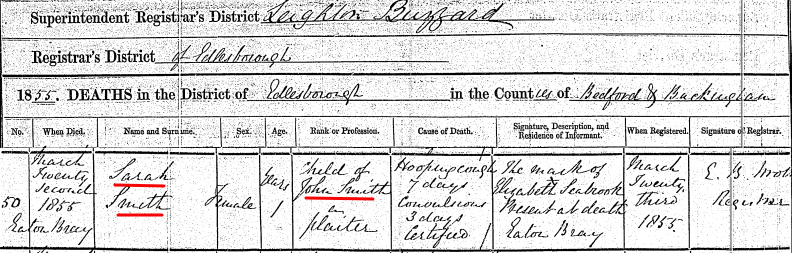 Superintendent Registrar's District Leighton Buzzard
Registrar's District of Edlesborough
1855. DEATHS in the District of Edlesborough in the Counties of Bedford & Buckingham
No. When Died. Name and Surname. Sex. Age. Rank or Profession. Cause of Death. Signature, Description, and Residence of Informant. When Registered. Signature of Registrar.
50
March
Twenty
second
1855
Eaton Bray
Sarah
Smith
Female
Years
1
Child of
John Smith
a
plaiter
Hooping cough
7 days
Convulsions
3 days
Certified
The mark of
Elizabeth Seabrook
Present at death
Eaton Bray
March
Twenty
third
1855
E. B.
Registrar